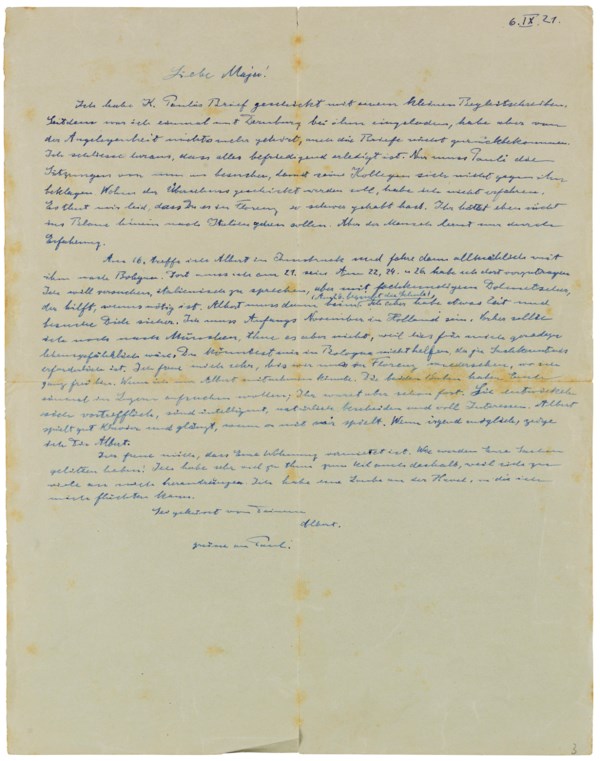 6. IX. 21.
Liebe Maja!
Ich habe K. Paulis Brief geschickt mit einem kleinen Begleitschreiben.
Seitdem war ich einmal mit Dernburg bei ihm eingeladen, habe aber von
der Angelegenheit nichts mehr gehört, auch die Briefe nicht zurückbekommen.
Ich schliesse daraus, dass alles befriedigend erledigt ist. Nur muss Pauli die
Sitzungen von nun an besuchen, damit seine Kollegen sich nicht gegen ihn
beklagen. Wohin der geschickt werden soll, habe ich nicht erfahren.
Es thut mir leid, dass Du es in Florenz so schwer gehabt hast. Ihr hättet eben nicht
ins Blaue hinein nach Italien gehen sollen. Aber der Mensch lernt nur durch
Erfahrung.
Am 16. treffe ich Albert in Innsbruck und fahre dann allmählich mit
ihm nach Bologna. Dort muss ich am 21. sein. Am 22., 24. u. 26. habe ich dort vorzutragen.
Ich will versuchen, italienisch zu sprechen, aber mit fachkundigem Dolmetscher,
der hilft, wenn nötig ist. Albert muss dann heim. Ich aber habe etwas Zeit und
besuche Dich sicher. Ich muss Anfangs November in Holland sein. Vorher sollte
ich noch nach München, thue es aber nicht, weil dies für mich geradezu
lebensgefährlich wird. Du könntest mir in Bologna nicht helfen, da ja Sachkenntnis
erforderlich ist. Ich freue mich sehr, bis wir uns in Florenz wiedersehen, wo
Wenn ich nur Albert mitnehmen könnte. Die beiden Buben haben
einmal in Luzern aufsuchen wollen; Ihr waret aber schon fort. Sie entwickeln
sich vortrefflich, sind intelligent, natürlich, bescheiden und voll Interessen. Albert
spielt gut Klavier und glänzt, wenn er mit mir spielt. Wenn irgend möglich, zeige
ich Dir Albert.
Ich freue mich, dass Eure Wohnung vermietet ist. Wo werden Eure Sachen
geblieben haben? Ich habe sehr viel zu thun, zum Teil auch deshalb, weil sich gar
viele an mich herandrängen. Ich habe eine Laube an der Havel, in die ich
mich flüchten kann.
Sei geküsst von Deinem
Albert.
Grüsse an Pauli.
3